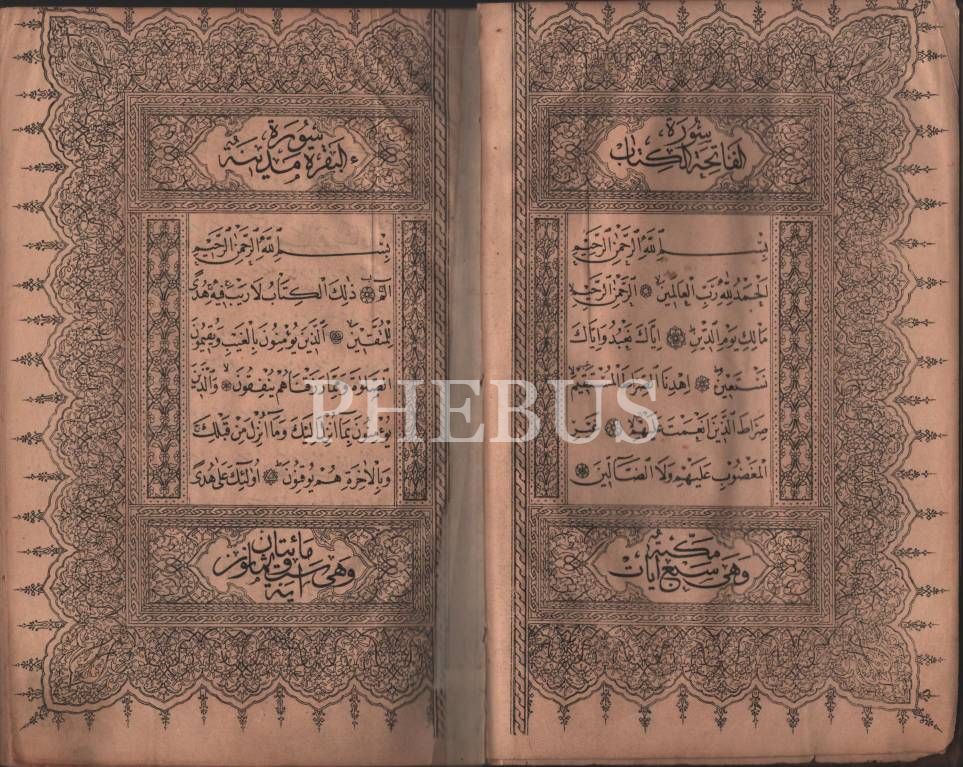 سورة
الفاتحة الكتاب
بِسْمِ اللّٰهِ الرَّحْمٰنِ الرَّحِيمِ
اَلْحَمْدُ لِلّٰهِ رَبِّ الْعَالَمِينَ الرَّحْمٰنِ الرَّحِيمِ
مَالِكِ يَوْمِ الدِّينِ اِيَّاكَ نَعْبُدُ وَاِيَّاكَ
نَسْتَعِينُ اِهْدِنَا الصِّرَاطَ الْمُسْتَقِيمَ
صِرَاطَ الَّذِينَ اَنْعَمْتَ عَلَيْهِمْ غَيْرِ
الْمَغْضُوبِ عَلَيْهِمْ وَلَا الضَّالِّينَ
مكية
وهي سبع آيات
سورة
البقرة مدنية
بِسْمِ اللّٰهِ الرَّحْمٰنِ الرَّحِيمِ
الٓمٓ ذٰلِكَ الْكِتَابُ لَا رَيْبَ فِيهِ هُدًى
لِلْمُتَّقِينَ اَلَّذِينَ يُؤْمِنُونَ بِالْغَيْبِ وَيُقِيمُونَ
الصَّلٰوةَ وَمِمَّا رَزَقْنَاهُمْ يُنْفِقُونَ وَالَّذِينَ
يُؤْمِنُونَ بِمَا اُنْزِلَ اِلَيْكَ وَمَا اُنْزِلَ مِنْ قَبْلِكَ
وَبِالْاٰخِرَةِ هُمْ يُوقِنُونَ اُولٰئِكَ عَلٰى هُدًى
مائتان
وهي وثمانون
آية
PHEBUS